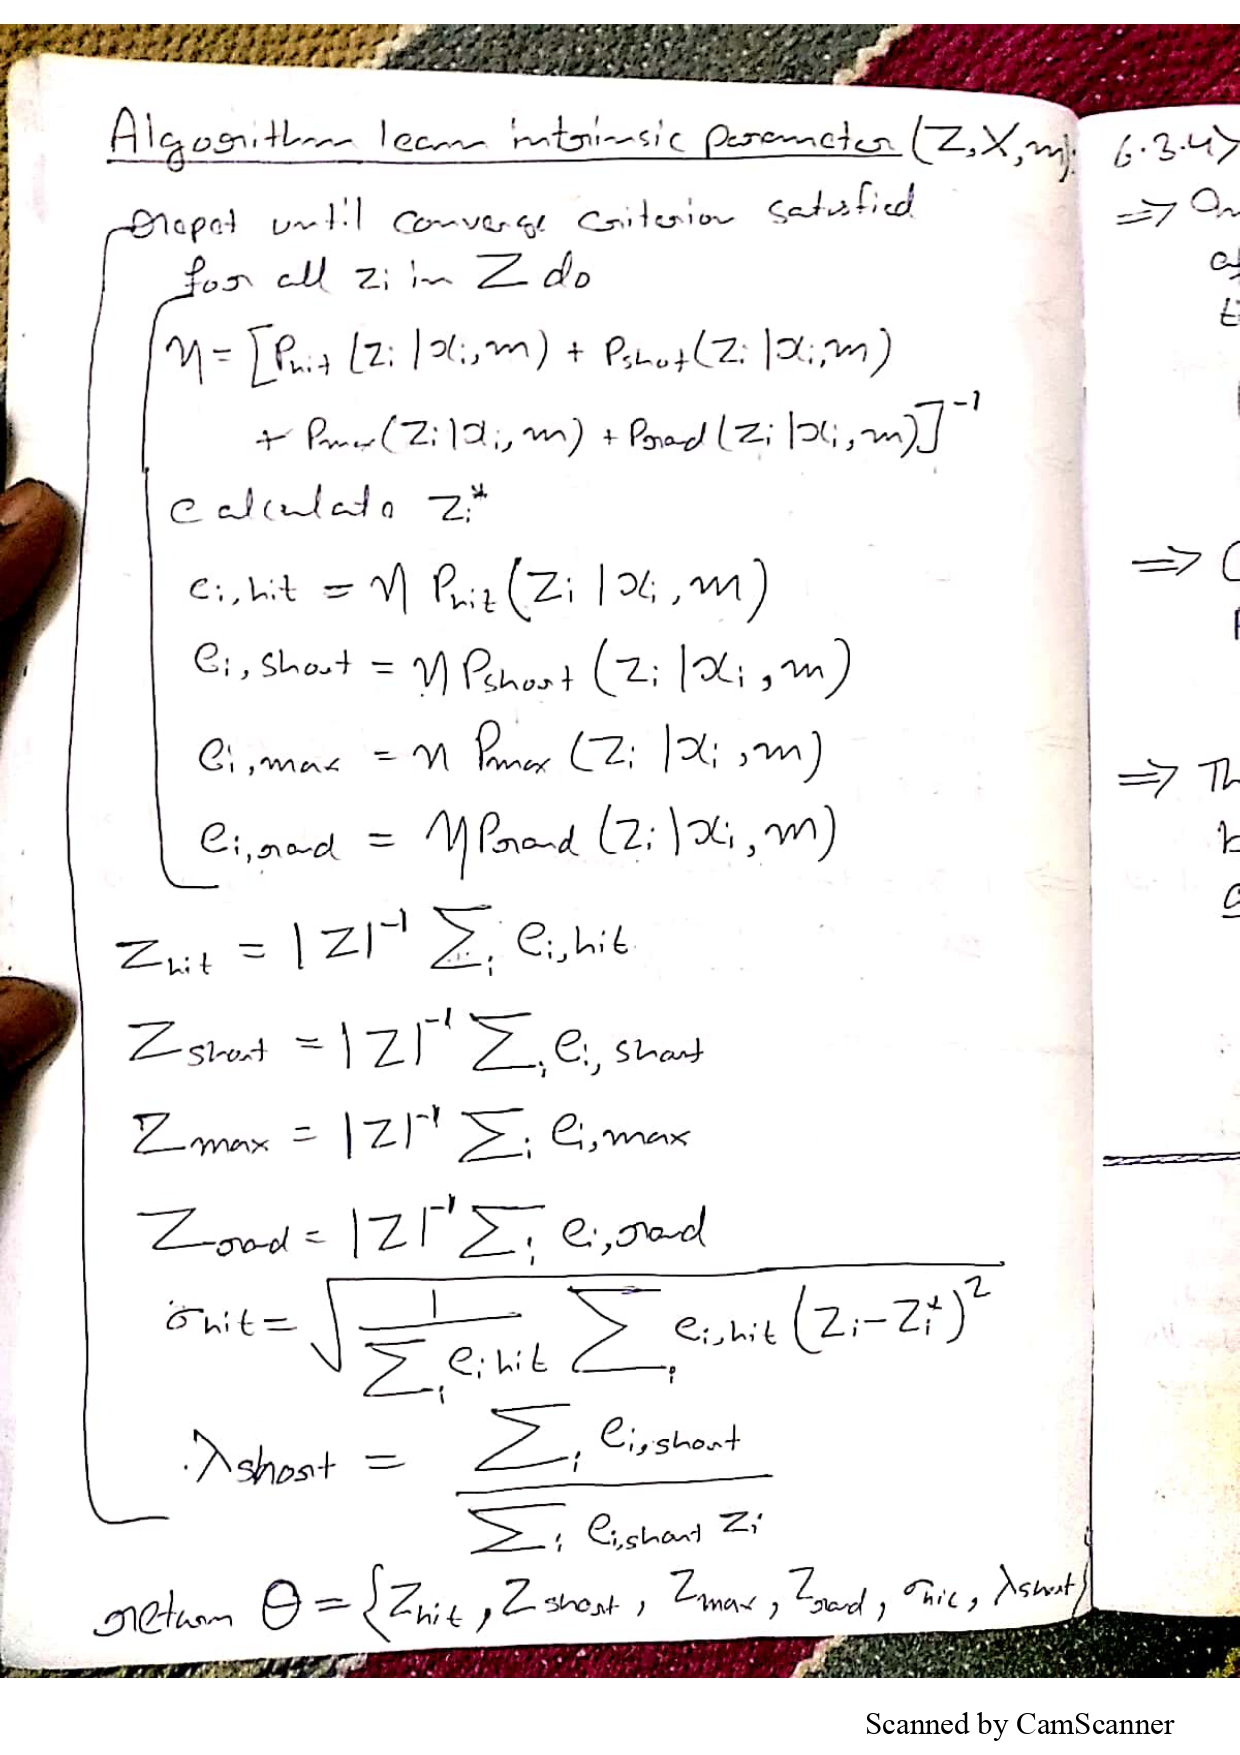 Algorithm learn intrinsic parameter (Z, X, m):
repet until converge criterion satisfied
for all zi in Z do
η = [Phit (zi | xi, m) + Pshot (zi | xi, m)
+ Pmax (zi | xi, m) + Prad (zi | xi, m)]⁻¹
calculate zi*
ei, hit = η Phit (zi | xi, m)
ei, short = η Pshort (zi | xi, m)
ei, max = η Pmax (zi | xi, m)
ei, rad = η Prand (zi | xi, m)
Zhit = |Z|⁻¹ Σi ei, hit
Zshort = |Z|⁻¹ Σi ei, short
Zmax = |Z|⁻¹ Σi ei, max
Zrad = |Z|⁻¹ Σi ei, rand
σhit = √ 1 / Σi ei hit Σi ei, hit (zi - zi*)²
λshort = Σi ei, short
Σi ei, short zi
return Θ = {Zhit, Zshort, Zmax, Zrad, σhit, λshort}
6.3.4>
⇒
⇒
⇒ Th
Scanned by CamScanner